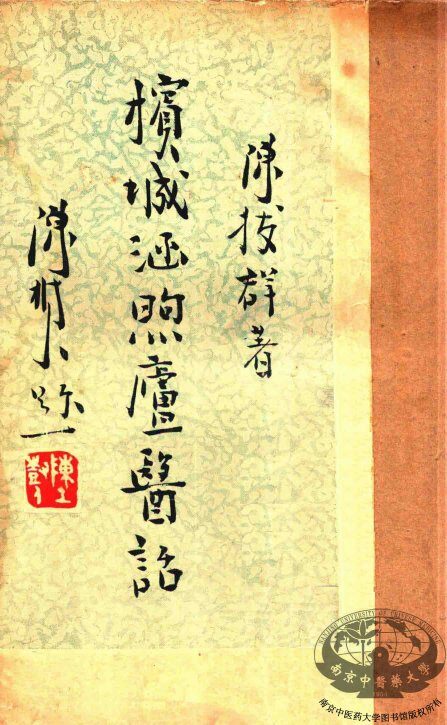 陳拔群著
檳城涵煦廬醫話
陳樹人題
南京中醫藥大學
1954
南京中医药大学图书馆版权所有